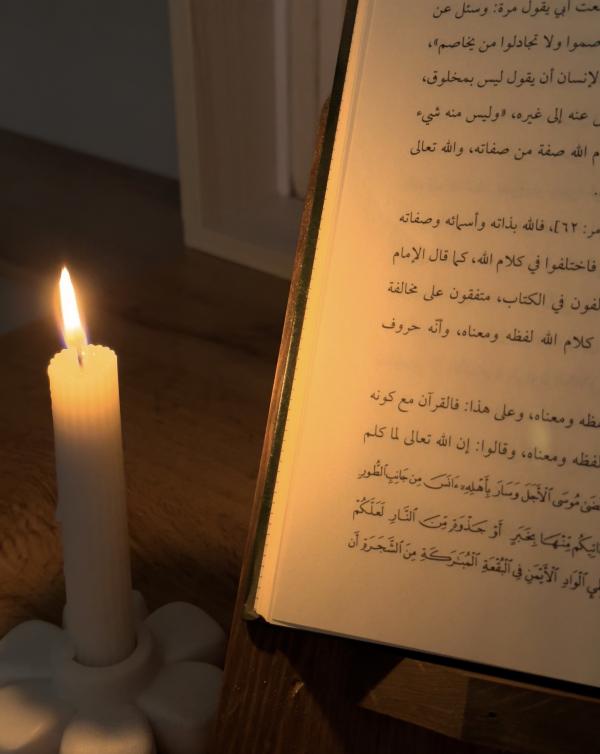 سمعت أبي يقول مرة: وسئل عن
ولا تجادلوا من يخاصم»،
الإنسان أن يقول ليس بمخلوق،
عنه إلى غيره، «وليس منه شيء
الله صفة من صفاته، والله تعالى
٦٢]، فالله بذاته وأسمائه وصفاته
فاختلفوا في كلام الله، كما قال الإمام
في الكتاب، متفقون على مخالفة
كلام الله لفظه ومعناه، وأنّه حروف
ومعناه، وعلى هذا: فالقرآن مع كونه
لفظه ومعناه، وقالوا: إن الله تعالى لما كلم
مُوسَى ٱلْأَجَلَ وَسَارَ بِأَهْلِهِۦٓ ءَانَسَ مِن جَانِبِ ٱلطُّورِ
مِّنْهَا بِخَبَرٍ أَوْ جَذْوَةٍ مِّنَ ٱلنَّارِ لَعَلَّكُمْ
ٱلْوَادِ ٱلْأَيْمَنِ فِي ٱلْبُقْعَةِ ٱلْمُبَٰرَكَةِ مِنَ ٱلشَّجَرَةِ أَن